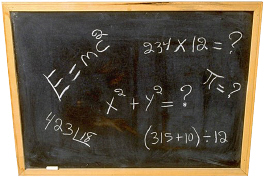 E=mc²
234 x 12 = ?
π = ?
x² + y² = ?
423 L18
(315+10) ÷ 12